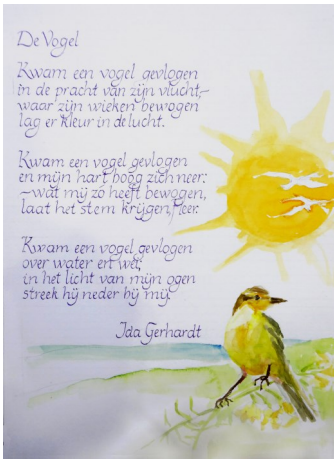 De Vogel
Kwam een vogel gevlogen
in de pracht van zijn vlucht,~
waar zijn wieken bewogen
lag er kleur in de lucht.
Kwam een vogel gevlogen
en mijn hart boog zich neer:
~wat mij zó heeft bewogen,
laat het stem krijgen, Heer.
Kwam een vogel gevlogen
over water en wei,
in het licht van mijn ogen
streek hij neder bij mij.
Ida Gerhardt